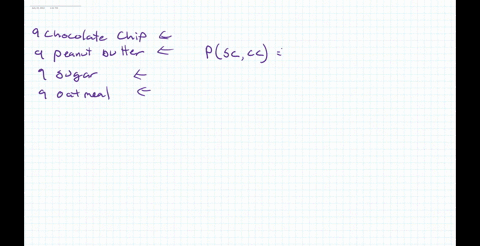 9 Chocolate Chip ←
9 peanut butter ← P(sc, cc) =
9 sugar ←
9 oatmeal ←